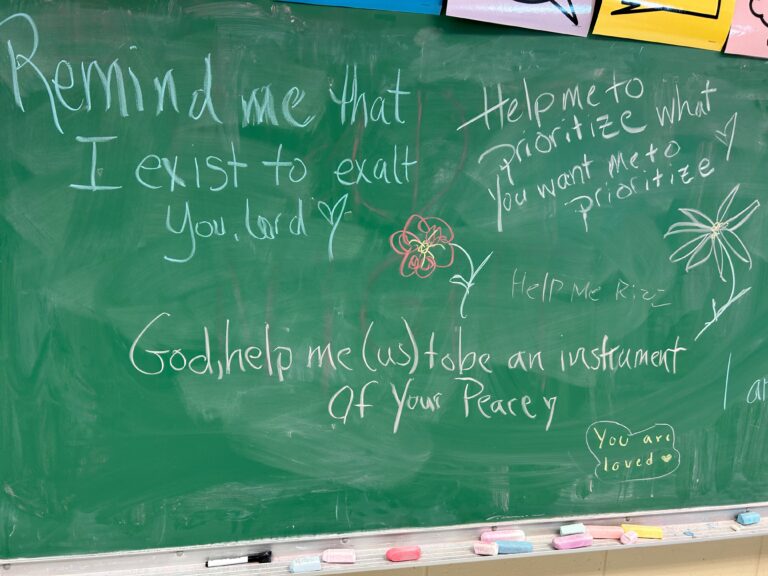 Remind me that
I exist to exalt
You, Lord
Help me to
prioritize what
You want me to
prioritize
Help Me Rizz
God, help me (us) to be an instrument
Of Your Peace
You are
loved
I